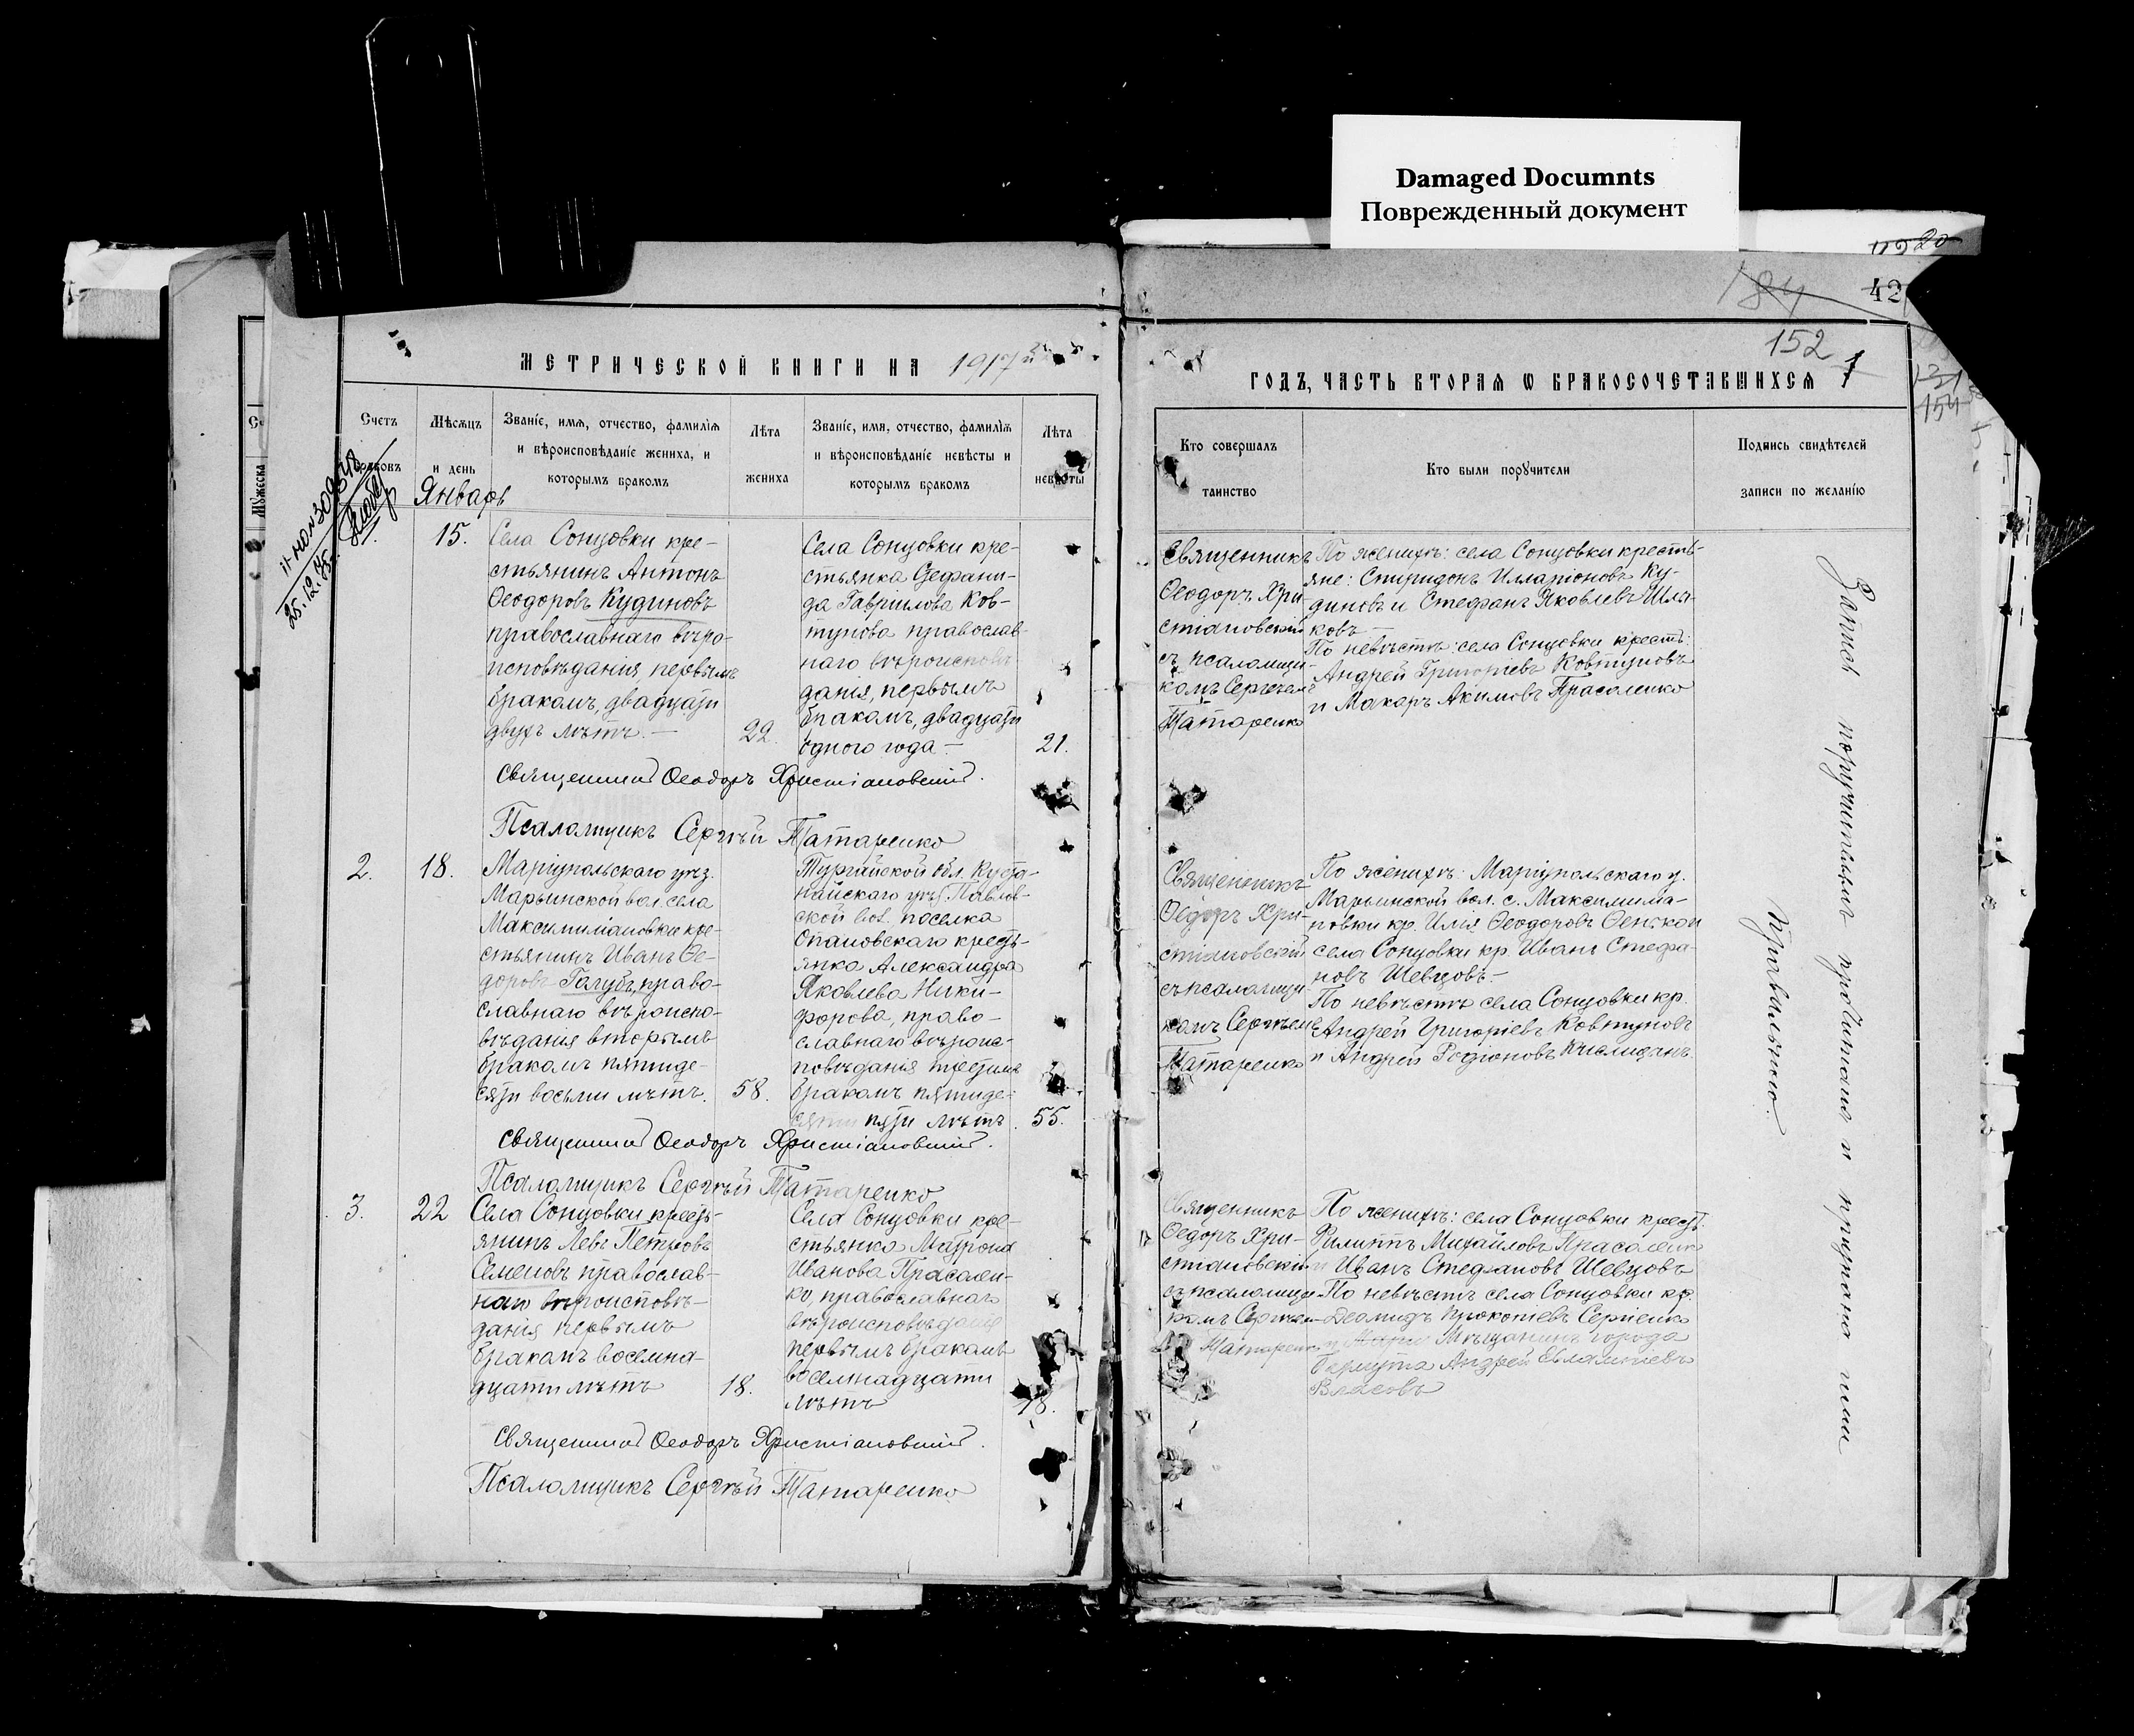 Damaged Documnts
Поврежденный документ
184
42
152
1
154
МЕТРИЧЕСКОЙ КНИГИ НА 1917й
ГОДЪ, ЧАСТЬ ВТОРАЯ Ѡ БРАКОСОЧЕТАВШИХСЯ
Счетъ
браковъ
Мѣсяцъ
и день
Январь
Званіе, имя, отчество, фамилія
и вѣроисповѣданіе жениха, и
которымъ бракомъ
Лѣта
жениха
Званіе, имя, отчество, фамилія
и вѣроисповѣданіе невѣсты и
которымъ бракомъ
Лѣта
невѣсты
Кто совершалъ
таинство
Кто были поручители
Подпись свидѣтелей
записи по желанію
Мужеска
25.12.
1.
15.
Села Сонцовки кре-
стьянинъ Антонъ
Ѳеодоровъ Кудиновъ
православнаго вѣро-
исповѣданія, первымъ
бракомъ, двадцати
двухъ лѣтъ. —
22.
Села Сонцовки кре-
стьянка Зефани-
да Гавріилова Ков-
тунова православ-
наго вѣроисповѣ
данія, первымъ
бракомъ, двадцати
одного года —
21.
Священникъ
Ѳеодоръ Хри-
стіановскій
съ псаломщи-
комъ Сергѣемъ
Татаренко
По женихѣ: села Сонцовки кресть-
яне: Спиридонъ Илларіоновъ Ку-
диновъ и Стефанъ Яковлевъ Шля-
ковъ —
По невѣстѣ: села Сонцовки кресть:
Андрей Григоріевъ Ковтуновъ
и Макаръ Акимовъ Прасоленко
Священникъ Ѳеодоръ Христіановскій.
Псаломщикъ Сергѣй Татаренко
2.
18.
Маріупольскаго уѣз.
Марьинской вол. села
Максимиліановки кре-
стьянинъ Иванъ Ѳе-
доровъ Голубъ, право-
славнаго вѣроиспо-
вѣданія вторымъ
бракомъ пятиде-
сяти восьми лѣтъ.
58.
Тургайской обл. Куста-
найскаго уѣз. Павлов-
ской вол. поселка
Опановскаго кресть-
янка Александра
Яковлева Ники-
форова, право-
славнаго вѣроис-
повѣданія третьимъ
бракомъ пятиде-
сяти пяти лѣтъ
55.
Священникъ
Ѳедоръ Хри-
стіановскій
съ псаломщи-
комъ Сергѣемъ
Татаренко
По женихѣ: Маріупольскаго у.
Марьинской вол. с. Максимилиа-
новки кр. Илія Ѳеодоровъ
села Сонцовки кр. Иванъ Стефа-
новъ Шевцовъ —
По невѣстѣ села Сонцовки кр.
Андрей Григоріевъ Ковтуновъ
и Андрей Родіоновъ
Священникъ Ѳеодоръ Христіановскій.
Псаломщикъ Сергѣй Татаренко
3.
22
Села Сонцовки кресть-
янинъ Левъ Петровъ
Семеновъ православ-
наго вѣроисповѣ-
данія первымъ
бракомъ восемна-
дцати лѣтъ
18.
Села Сонцовки кре-
стьянка Матрона
Иванова Прасолен-
ко, православнаго
вѣроисповѣданія
первымъ бракомъ
восемнадцати
лѣтъ
18.
Священникъ
Ѳедоръ Хри-
стіановскій
съ псаломщи-
комъ Сергѣем-
Татаренко
По женихѣ: села Сонцовки кресть.
Филиппъ Михайловъ Прасоленко
и Иванъ Стефановъ Шевцовъ
По невѣстѣ села Сонцовки кр.
Деомидъ Прокопіевъ Сергіенко
и Мѣщанинъ города
Бахмута Андрей Евлампіевъ
Власовъ
Священникъ Ѳеодоръ Христіановскій.
Псаломщикъ Сергѣй Татаренко
Запись поручителямъ прочитана и признана ими
правильною.